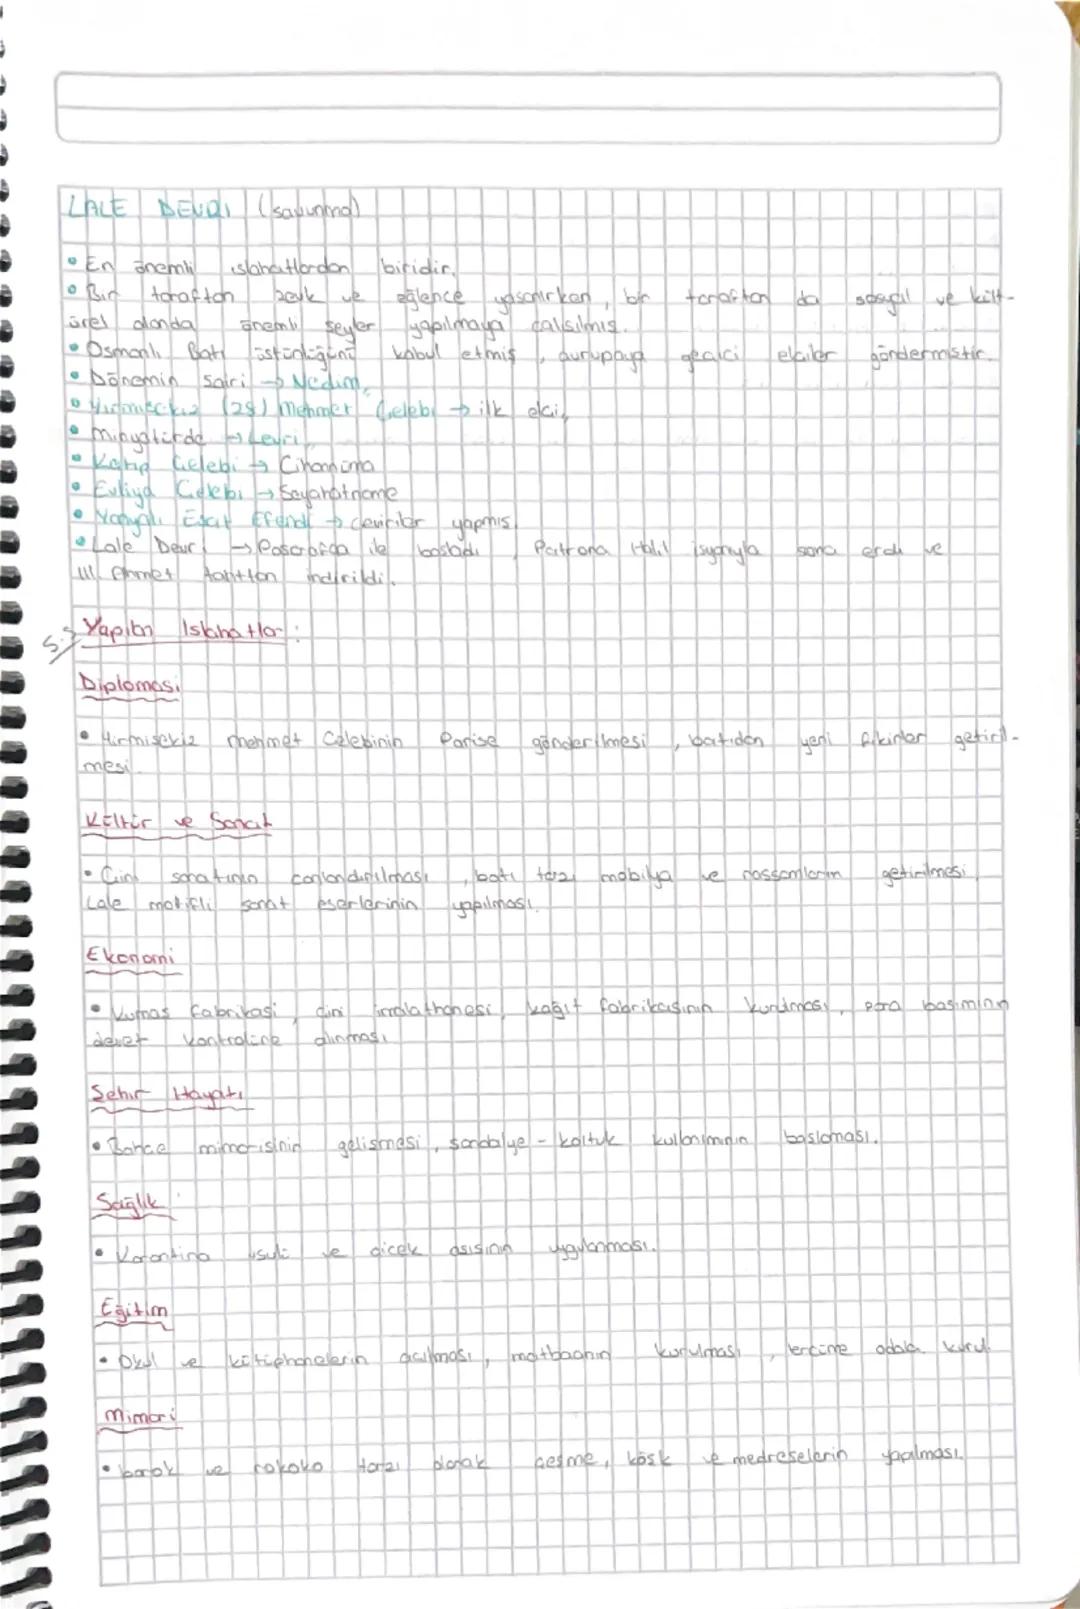 LALE DEVRİ (savunma)
• En önemli ıslahatlardan biridir.
• Bir taraftan zevk ve eğlence yaşanırken, bir taraftan da sosyal ve kült-
ürel alanda önemli şeyler yapılmaya çalışılmış.
• Osmanlı Batı üstünlüğünü kabul etmiş, avrupaya geçici elçiler göndermiştir.
• Dönemin şairi → Nedim
• Yirmisekiz (28) Mehmet Çelebi → ilk elçi
• Minyatürde → Levni
• Katip Çelebi → Cihannüma
• Evliya Çelebi → Seyahatname
• Yanyalı Esat Efendi → çeviriler yapmış.
• Lale Devri → Pasarofça ile başladı, Patrona Halil isyanıyla sona erdi ve
III. Ahmet tahttan indirildi.
Yapılan Islahatlar:
Diplomasi
• Yirmisekiz mehmet Çelebinin Parise gönderilmesi, batıdan yeni fikirler getiril-
mesi.
Kültür ve Sanat
• Çini sanatının canlandırılması, batı tarzı mobilya ve ressamların getirilmesi,
Lale motifli sanat eserlerinin yapılması.
Ekonomi
• Kumaş fabrikası, çini imalathanesi, kağıt fabrikasının kurulması, para basımının
devlet kontrolüne alınması
Şehir Hayatı
• Bahçe mimarisinin gelişmesi, sandalye - koltuk kullanımının başlaması.
Sağlık:
• Karantina usulü ve çiçek aşısının uygulanması.
Eğitim
• Okul ve kütüphanelerin açılması, matbaanın kurulması, tercüme odaları kurul.
Mimari
• barok ve rokoko tarzı olarak çeşme, köşk ve medreselerin yapılması.